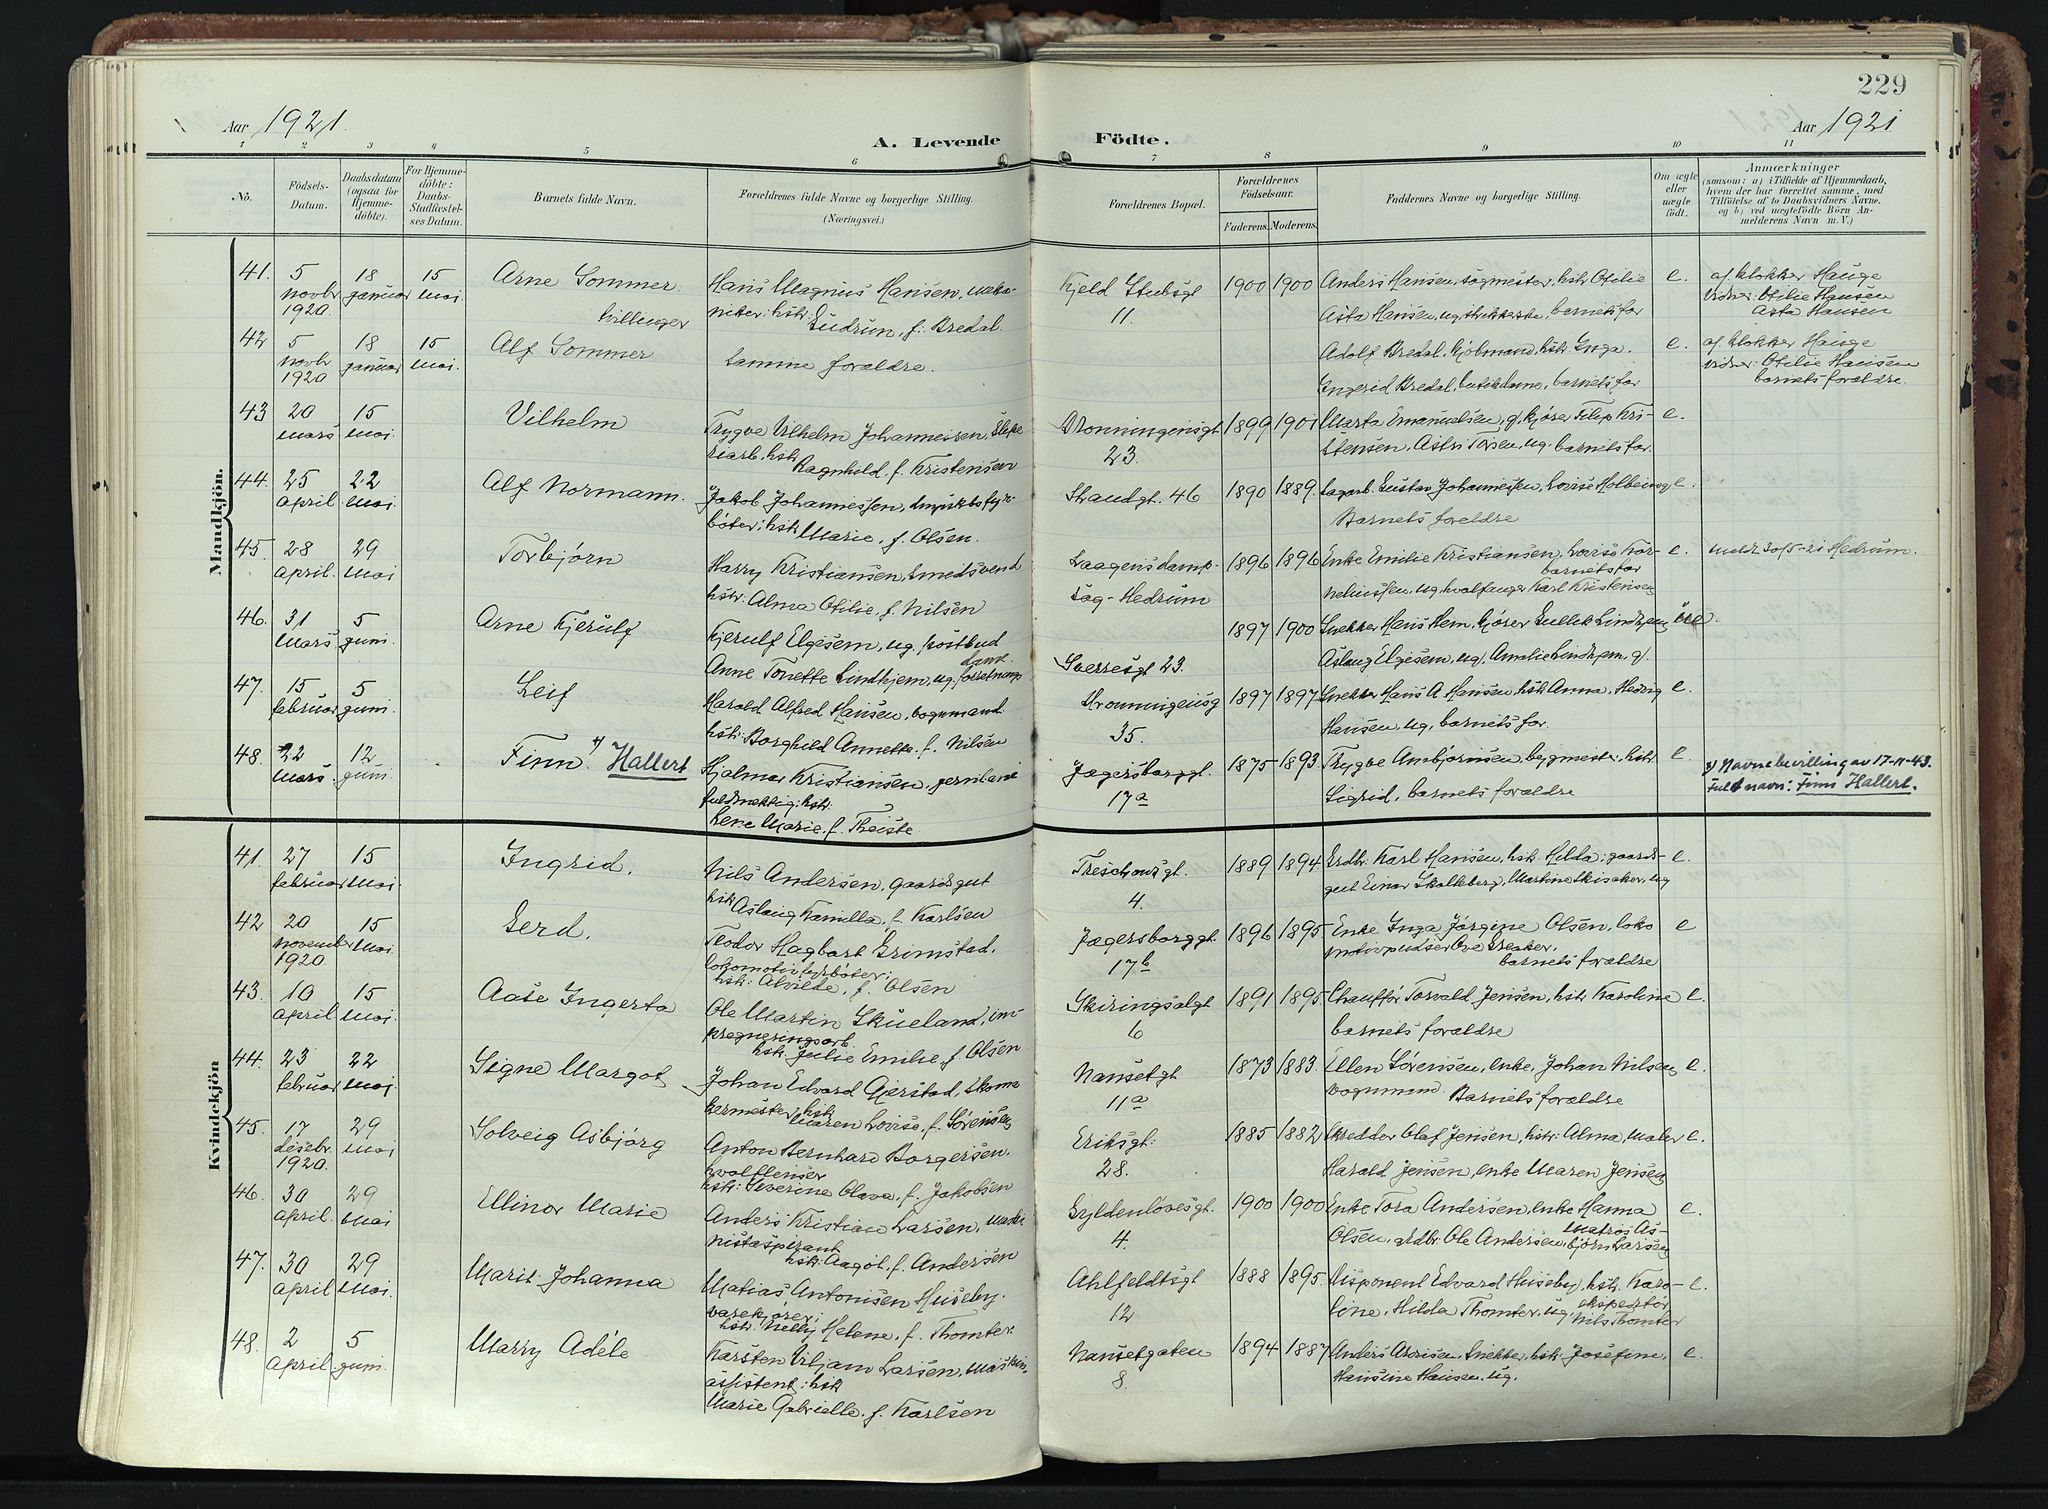 229
Aar 1921.
A. Levende
Födte.
Aar 1921
1 2 3 4 5 6 7 8 9 10 11
No.
Födsels-
Datum.
Daabsdatum
(ogsaa for
Hjemme-
döbte).
For Hjemme-
döbte:
Daabs-
Stadfæstel-
ses Datum.
Barnets fulde Navn.
Forældrenes fulde Navne og borgerlige Stilling.
(Næringsvei.)
Forældrenes Bopæl.
Forældrenes
Födselsaar.
Faderens. Moderens.
Faddernes Navne og borgerlige Stilling.
Om ægte
eller
uægte
født.
Anmærkninger
(saasom: a) i Tilfælde af Hjemmedaab,
hvem der har forrettet samme, med
Tilföielse af to Daabsvidners Navne,
og b) ved uægtefödte Börn An-
melderens Navn m. V.)
Mandkjön.
41. 5 novbr 1920. 18 januar 15 mai
Arne Sommer
Killinger
Hans Magnus Hansen, meka-
niker; hstr. Gudrun, f. Bredal.
Kjeld Stubsgt
11.
1900 1900
Anders Hansen, sagmester, hstr Otilie
Asta Hansen, ug, barnets far
e.
af klokker Hauge
vidner: Otilie Hansen
Asta Hansen
42 5 novbr 1920 18 januar 15 mai.
Alf Sommer
Samme forældre.
Adolf Bredal, kjøbmand, hstr Inga.
Ingerid Bredal, butikdame, barnets far
e.
af klokker Hauge
vidner: Otilie Hansen
barnets forældre.
43 20 mars 15 mai.
Vilhelm
Trygve Vilhelm Johannesen,
hstr Ragnhild, f. Kristensen
Dronningensgt
23.
1899 1901
Marta Emanuelsen, g, kjører Filip Kri-
stensen, Astri Torsen, ug. barnets far.
e.
44. 25 april 22 mai.
Alf Normann.
Jakob Johannessen, dampskibsfyr-
bøter; hstr Marie, f. Olsen.
Strandgt. 46
1890 1889.
Sagarb. Gustav Johannessen, Lovise Holbein ug
Barnets foreldre
e.
45. 28 april. 29 mai
Torbjørn
Harry Kristiansen, smedsvend
hstr: Alma Otilie, f. Nilsen
Laagens damp-
sag - Hedrum
1896 1896
Enke Emilie Kristiansen, Lovise Kor-
barnets far
neliussen, ug, hvalfanger Karl Kristensen
e.
meldt 30/5-21 Hedrum.
46. 31 mars 5 juni.
Arne Kjerulf
Kjerulf Elgesem, ug. postbud
Anne Tonette Lindhjem, ug.
Sverresgt 23.
1897 1900
Snekker Hans Hem, kjører Gullik Lindhjem
Aslaug Elgesem, ug, Amalie Lindhjem, g.
47. 15 februar 5 juni.
Leif
Harald Alfred Hansen, vognmand.
hstr: Borghild Annette. f. Nilsen
Dronningensg
35.
1897 1897
Snekker Hans A Hansen, hstr Anna, Hedvig
Hansen, ug, barnets far.
e.
48. 22 mars. 12 juni.
Finn x) Hallert
Hjalmar Kristiansen, jernbane
fuldmektig; hstr.
Lene Marie. f. Theiste
Jægersborggt.
17a
1875 1893
Trygve Ambjørnsen, bygmestr; hstr.
Sigrid, barnets forældre
e
x) Navnebevilling av 17-11-43.
Fullt navn: Finn Hallert.
Kvindekjön
41. 27 februar 15 mai.
Ingrid.
Nils Andersen, gaardsgut
hstr Aslaug Kamilla, f. Karlsen
Treschowsgt.
4.
1889 1894
Erdbr. Karl Hansen, hstr. Hilda; gaards-
gut Einar Skalleberg, Martine Skisaker, ug
e.
42 20 november 1920 15 mai.
Gerd.
Teodor Hagbart Grimstad,
lokomotivfyrbøter;
hstr: Alvilde, f. Olsen
Jægersborggt.
17b
1896 1895
Enke Inga Jørgine Olsen, loko
motivpudser Ove Greaker.
barnets forældre
e
43. 10 april 15 mai.
Aase Ingerta
Ole Martin Skueland, im-
pregneringsarb.
hstr. Julie Emilie, f Olsen
Skiringsalgt
6
1891 1895
Chauffør Torvald Jensen, hstr Karoline
barnets forældre
e.
44. 23 februar 22 mai.
Signe Margot
Johan Edvard Gjerstad, skoma
kermester, hstr
Maren Lovise, f. Sørensen
Nansetgt
11a
1873 1883.
Ellen Sørensen, enke, Johan Nilsen
vognmand. Barnets forældre
e.
45. 17 desebr. 1920. 29 mai
Solveig Asbjørg
Anton Bernhard Borgersen.
hvalflenser
hstr: Severine Olava, f. Jakobsen
Eriksgt:
28.
1885 1882
Skredder Olaf Jensen, hstr: Alma, maler
Harald Jensen, enke Maren Jensen
e.
46. 30 april. 29 mai
Ellinor Marie
Anders Kristian Larsen, maski
nistaspirant
hstr: Aagot, f. Andersen
Gyldenløvesgt.
4.
1900 1900
Enke Tora Andersen, enke Hanna
Olsen, ardbr. Ole Andersen, matros As-
bjørn Larsen
e.
47. 30 april 29 mai.
Marit Johanna
Matias Antonisen Huseby.
varekjører;
hstr. Nelly Helene, f. Thomter.
Ahlfeldtsgt
12
1888 1895.
Disponent Edvard Huseby, hstr. Karo-
line, Hilda Thomter, ug, ekspeditør
Nils Thomter
e.
48. 2 april. 5 juni.
Marry Adéle
Karsten Viljam Larsen, maskin-
assistent; hstr
Marie Gabrielle. f. Karlsen
Nansetgaten
8.
1894 1887
Anders Andersen, Snekker, hstr: Josefine,
Hansine Hansen, ug.
e.